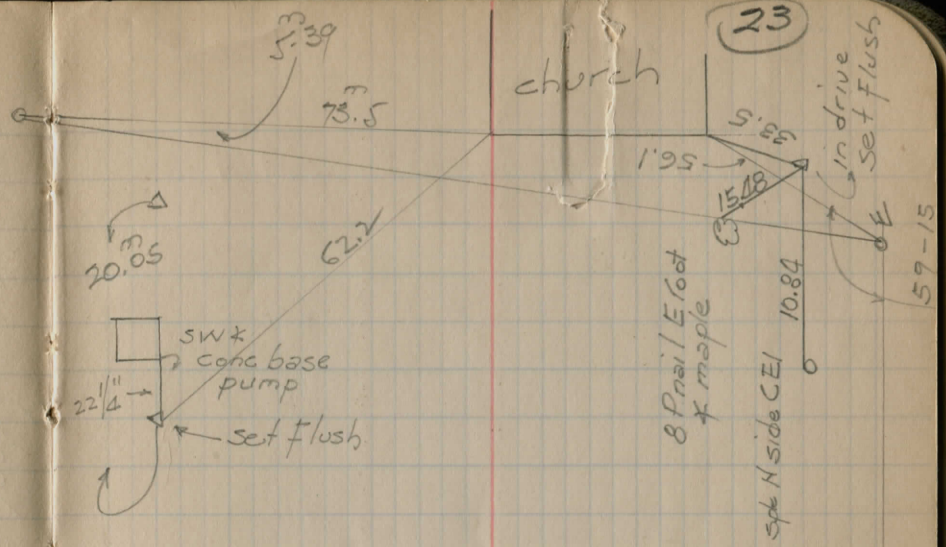 23
5.39 m
73.5
church
33.5
56.1
15.48
in drive
set Flush
E
59-15
20.05 m
62.2
10.84
SW *
conc base
pump
22 1/4"
set Flush
8 P nail E root
* maple
spk N side CEI